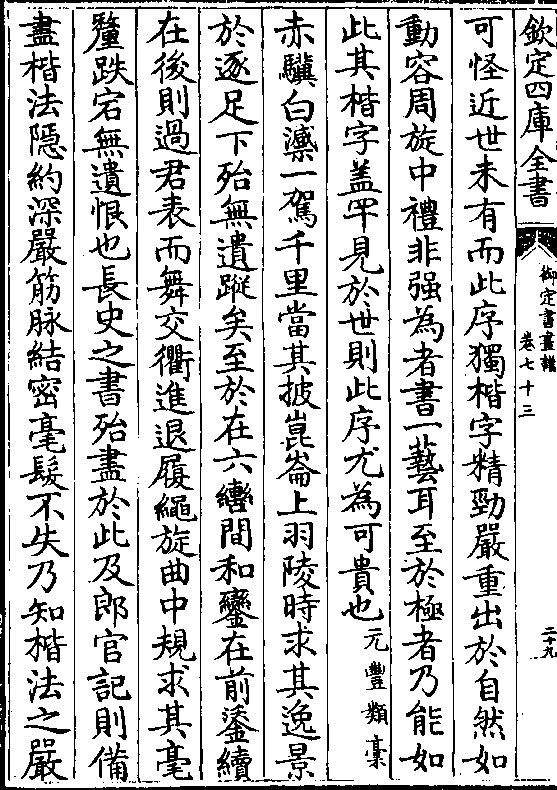 欽定四庫全書
御定書畫譜
卷七十三
二十九
可怪近世未有而此序獨楷字精勁嚴重出於自然如
動容周旋中禮非强為者書一藝耳至於極者乃能如
此其楷字盖罕見於世則此序尤為可貴也元豐類稾
赤驥白㶉一駕千里當其披崑崙上羽陵時求其逸景
於逐足下殆無遺蹤矣至於在六轡間和鑾在前鍌續
在後則過君表而舞交衢進退履繩旋曲中規求其毫
釐跌宕無遺恨也長史之書殆盡於此及郎官記則備
盡楷法隱約深嚴筋脉結密毫髮不失乃知楷法之嚴